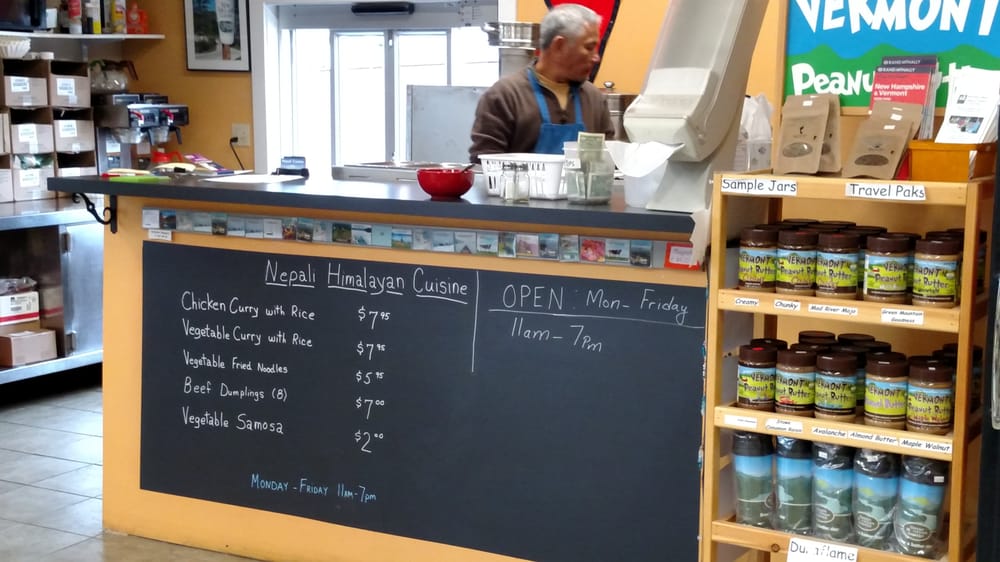 VERMONT
Peanut
RAND MCNALLY
New Hampshire
& Vermont
Sample Jars
Travel Paks
Nepali Himalayan Cuisine
Chicken Curry with Rice $7.95
Vegetable Curry with Rice $7.95
Vegetable Fried Noodles $5.95
Beef Dumplings (8) $7.00
Vegetable Samosa $2.00
MONDAY - FRIDAY 11AM-7pm
OPEN: Mon- Friday
11am - 7pm
VERMONT
Peanut Butter
Creamy
Chunky
Mad River Mojo
Green Mountain
Goodness
VERMONT
Peanut Butter
Cinnamon Raisin
Avalanche
Almond Butter
Maple Walnut